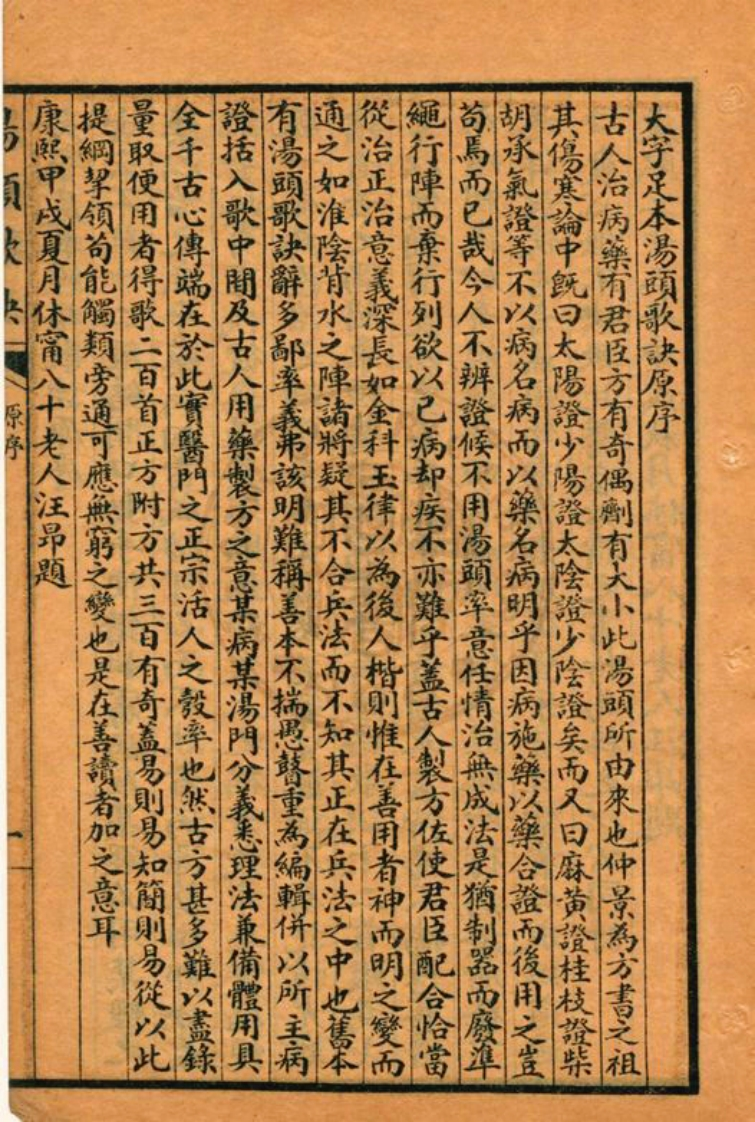 大字足本湯頭歌訣原序
古人治病藥有君臣方有奇偶劑有大小此湯頭所由來也仲景為方書之祖
其傷寒論中既曰太陽證少陽證太陰證少陰證矣而又曰麻黃證桂枝證柴
胡承氣證等不以病名病而以藥名病明乎因病施藥以藥合證而後用之豈
苟焉而已哉今人不辨證候不用湯頭率意任情治無成法是猶制器而廢準
繩行陣而棄行列欲以已病却疾不亦難乎蓋古人製方佐使君臣配合恰當
從治正治意義深長如金科玉律以為後人楷則惟在善用者神而明之變而
通之如淮陰背水之陣諸將疑其不合兵法而不知其正在兵法之中也舊本
有湯頭歌訣辭多鄙率義弗該明難稱善本不揣愚瞽重為編輯併以所主病
證括入歌中間及古人用藥製方之意某病某湯門分義悉理法兼備體用具
全千古心傳端在於此實醫門之正宗活人之彀率也然古方甚多難以盡錄
量取便用者得歌二百首正方附方共三百有奇蓋易則易知簡則易從以此
提綱挈領苟能觸類旁通可應無窮之變也是在善讀者加之意耳
康熙甲戌夏月休甯八十老人汪昂題
湯頭歌訣
原序
一